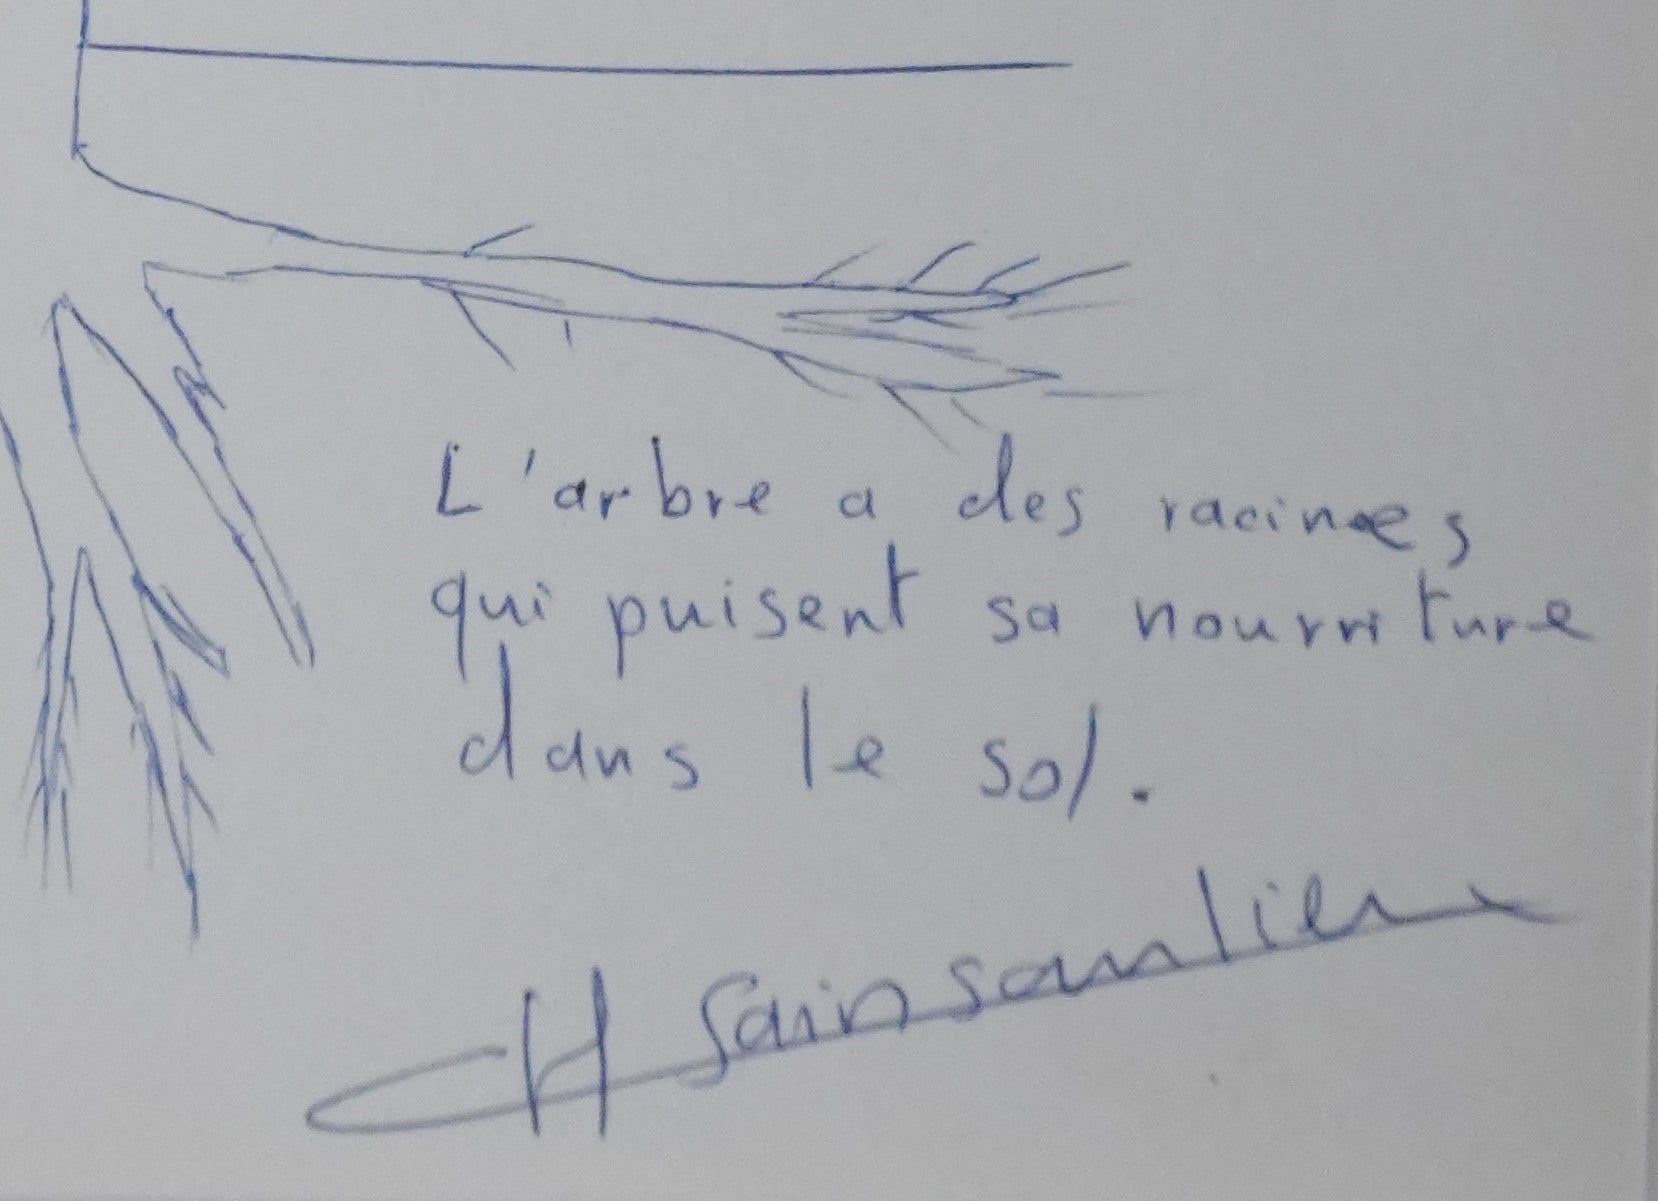 L'arbre a des racines
qui puisent sa nourriture
dans le sol.
CH Sainsaulieu